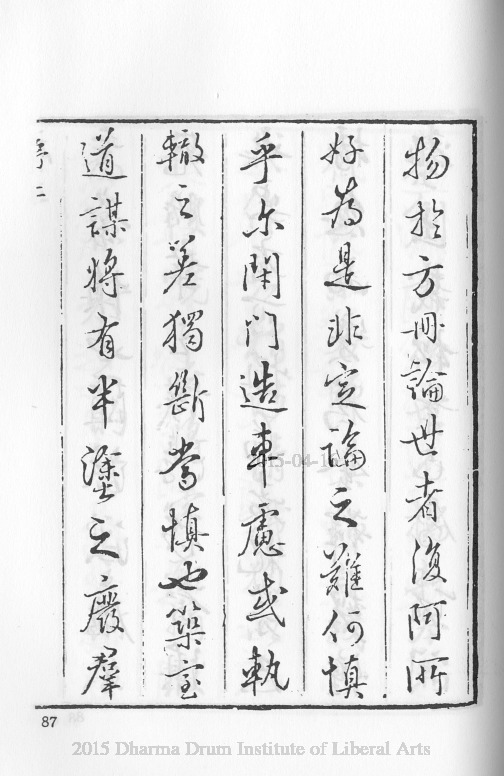 物於方冊論世者復阿所
好為是非定論之難何慎
乎尒閉门造車慮或執
轍之差獨斷當慎也築室
道謀將有半塗之廢羣
序二
87
2015 Dharma Drum Institute of Liberal Arts